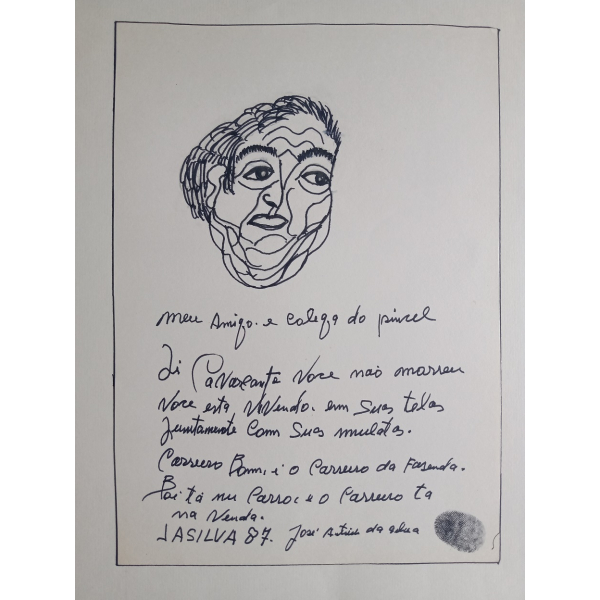 meu Amigo. e colega do pincel
Di Cavalcante Voce não morreu
Voce esta Vivendo. em Suas telas
Juntamente Com Suas mulatas.
Carreiro Bom. é o Carreiro da Fazenda.
Boi tá nu Carro. e o Carreiro ta
na Venda.
JASILVA 87. José Antonio da Silva